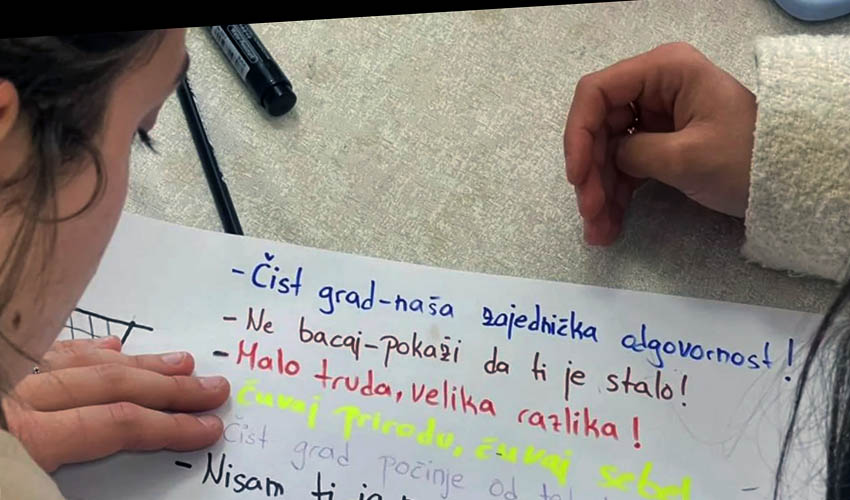 - Čist grad-naša zajednička odgovornost!
- Ne bacaj-pokaži da ti je stalo!
- Malo truda, velika razlika!
čuvaj prirodu, čuvaj sebe!
Čist grad počinje od
- Nisam ti